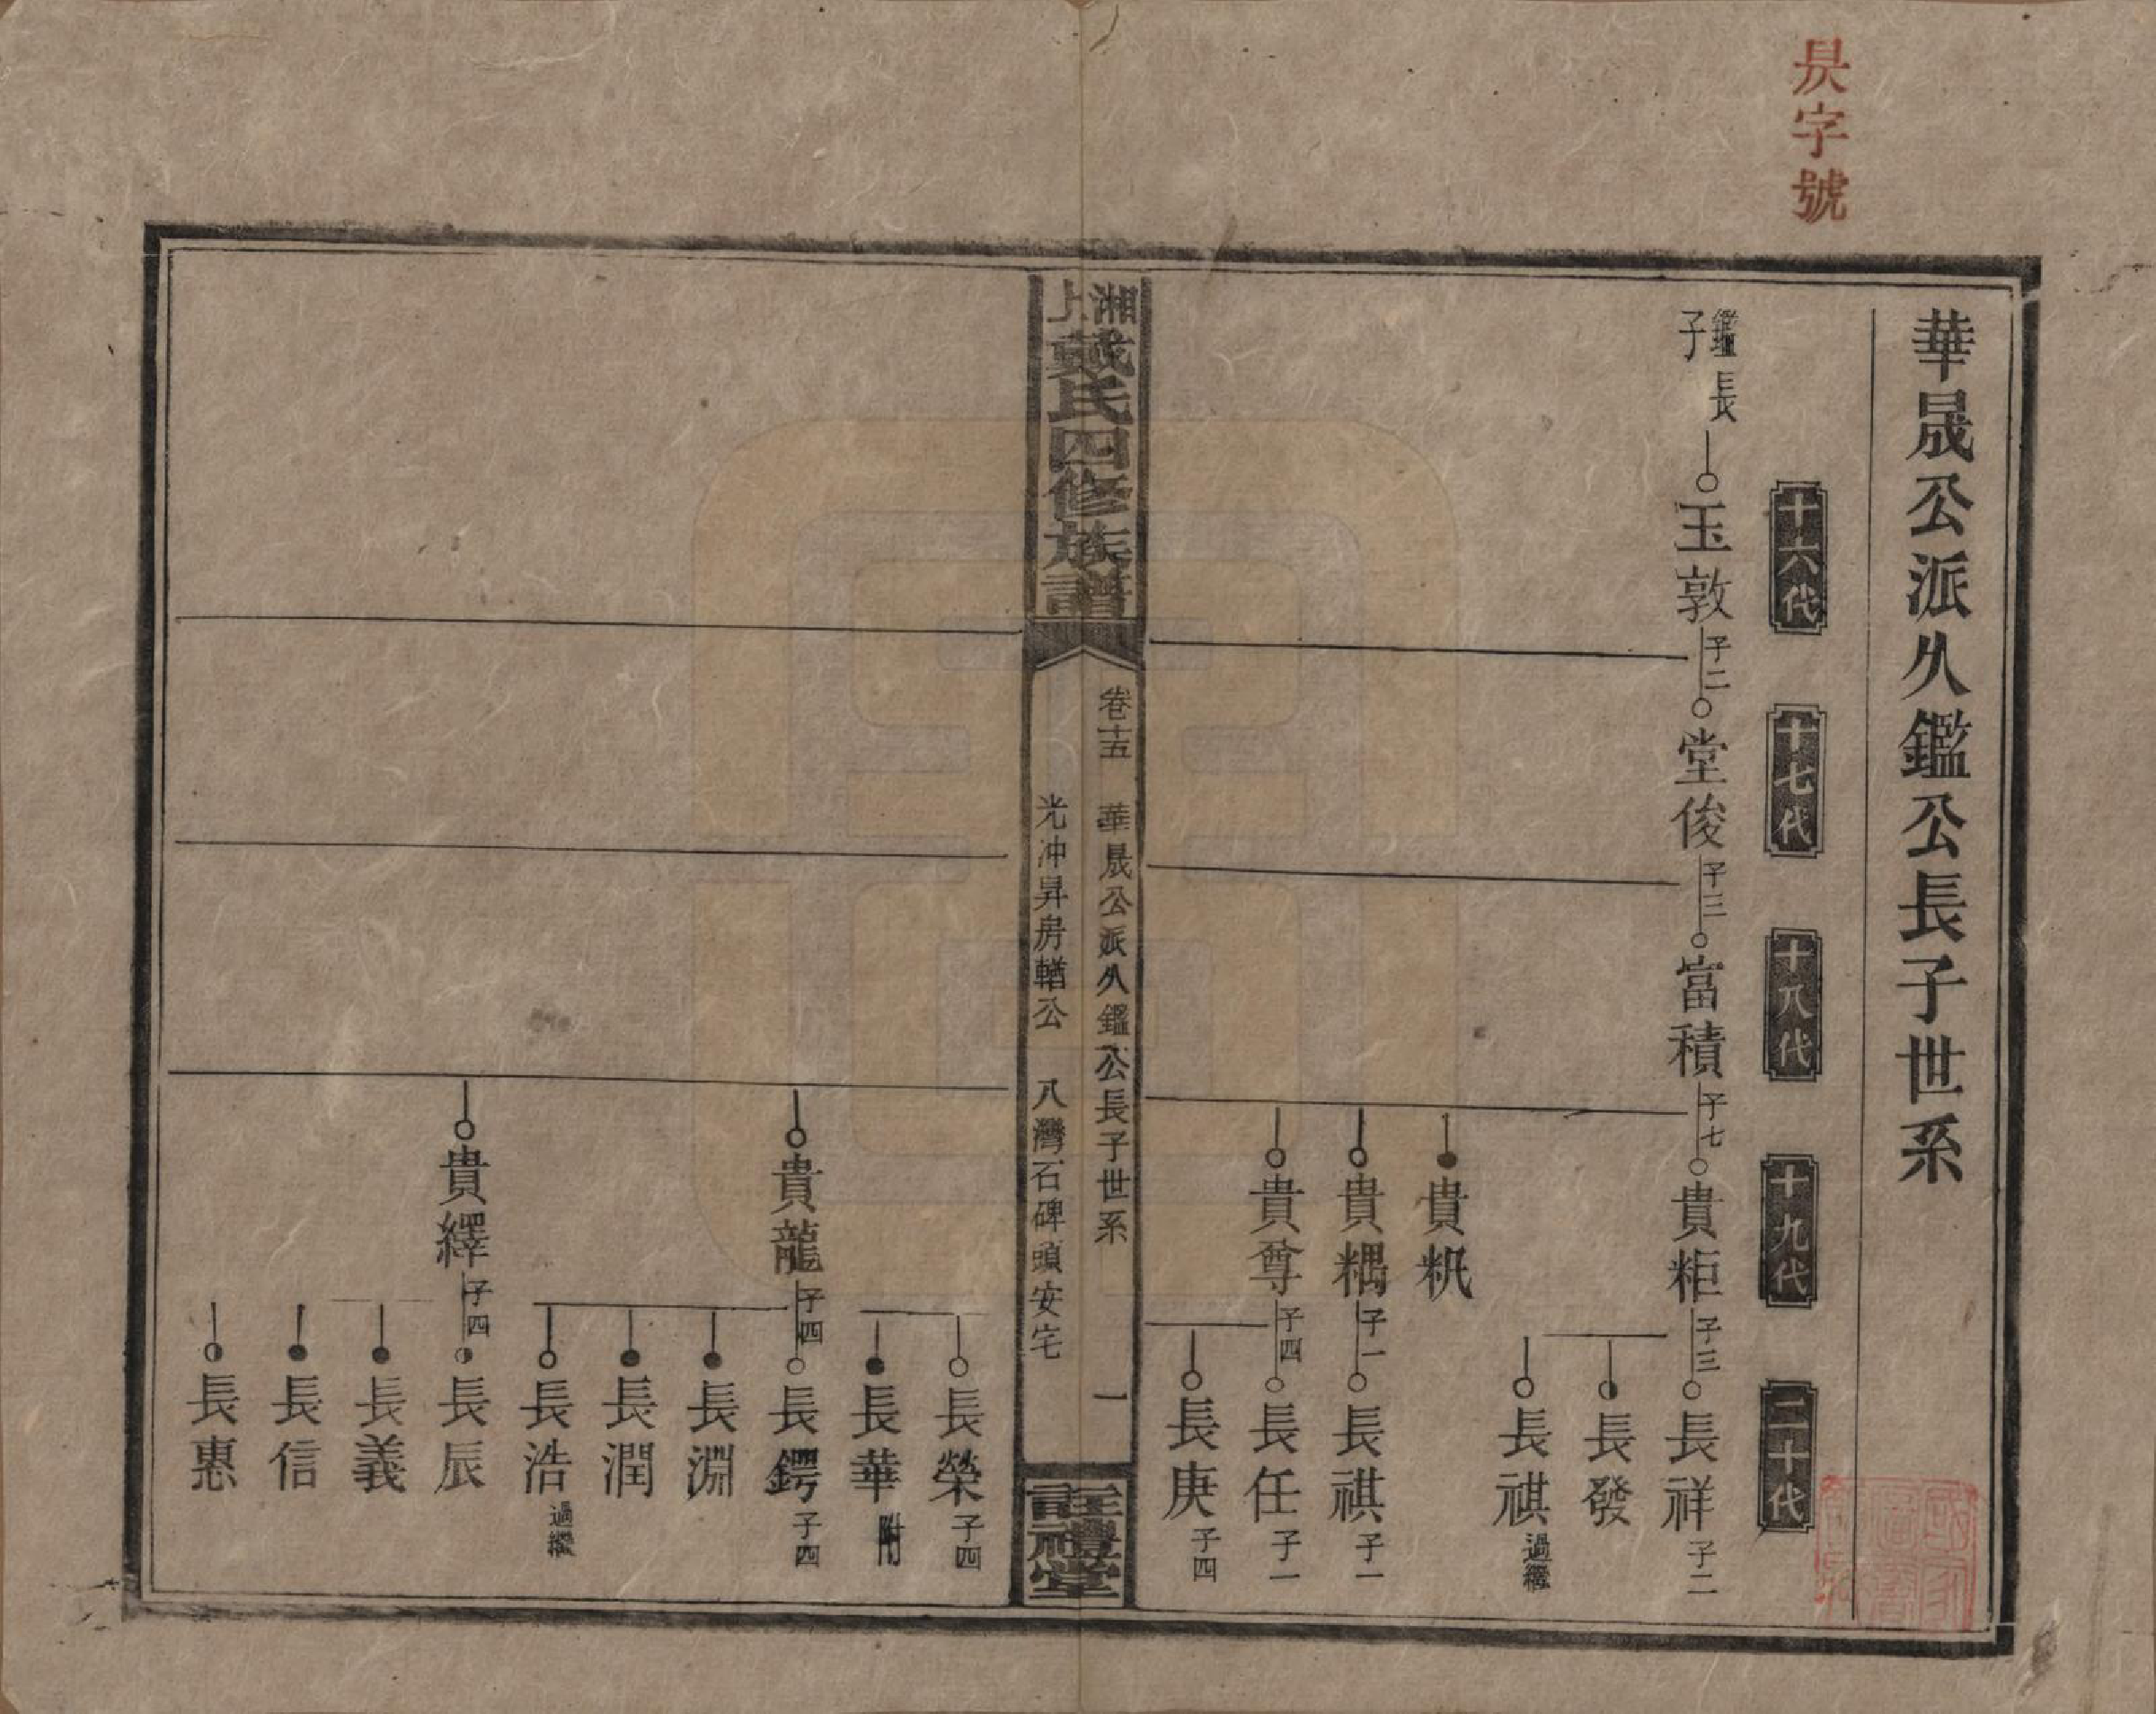 昃字號
華晟公派久鑑公長子世系
十六代
十七代
十八代
十九代
二十代
鑑長子
玉敦 子二
堂俊 子三
富積 子七
貴粔 子三
長祥 子二
長發
長祺 過繼
貴粎
貴糑 子一
長祺 子一
貴尊 子四
長任 子一
長庚 子四
湘上戴氏四修族譜
卷十五 華晟公派久鑑公長子世系 一
光冲昇房輶公 八灣石碑頭安宅
註禮堂
長榮 子四
長華 附
貴龍 子四
長鍔 子四
長淵
長潤
長浩 過繼
貴繹 子四
長辰
長義
長信
長惠